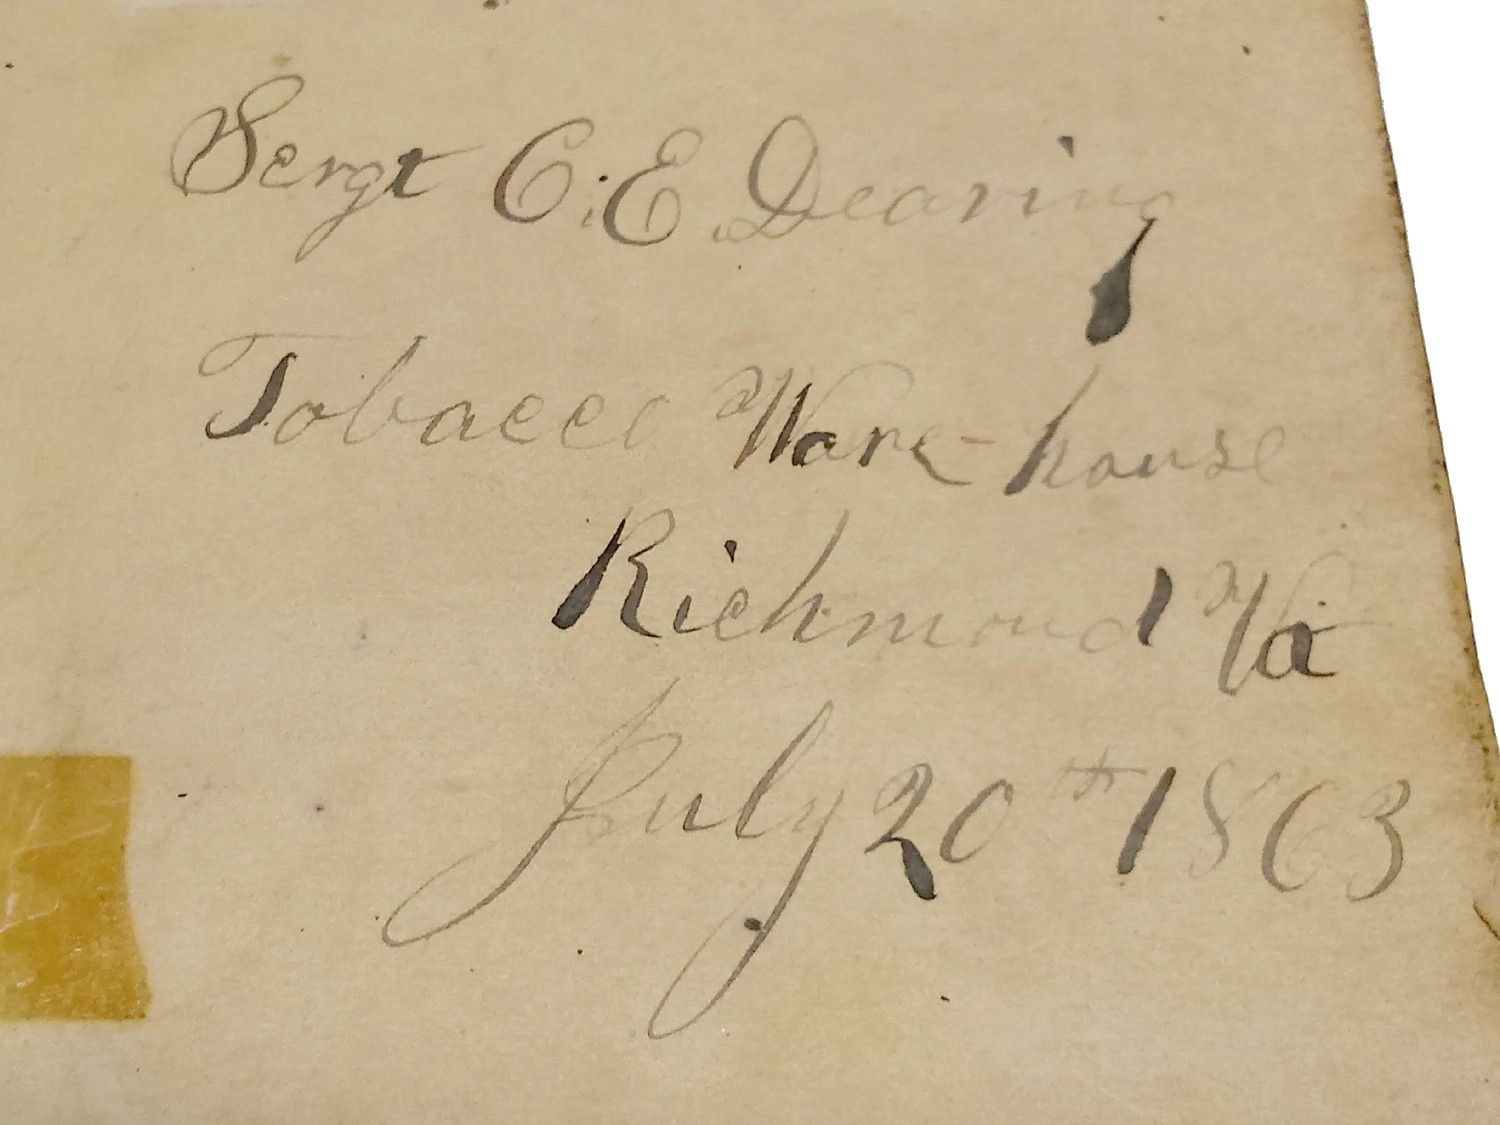 Sergt C. E. Dearing
Tobacco Ware-house
Richmond Va
July 20th 1863